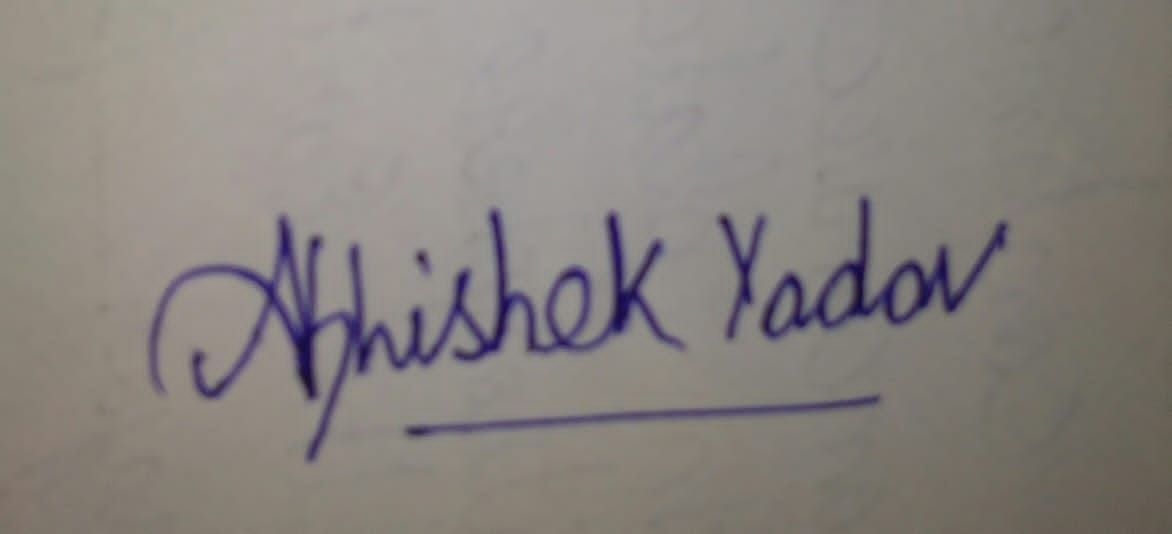 Abhishek Yadav